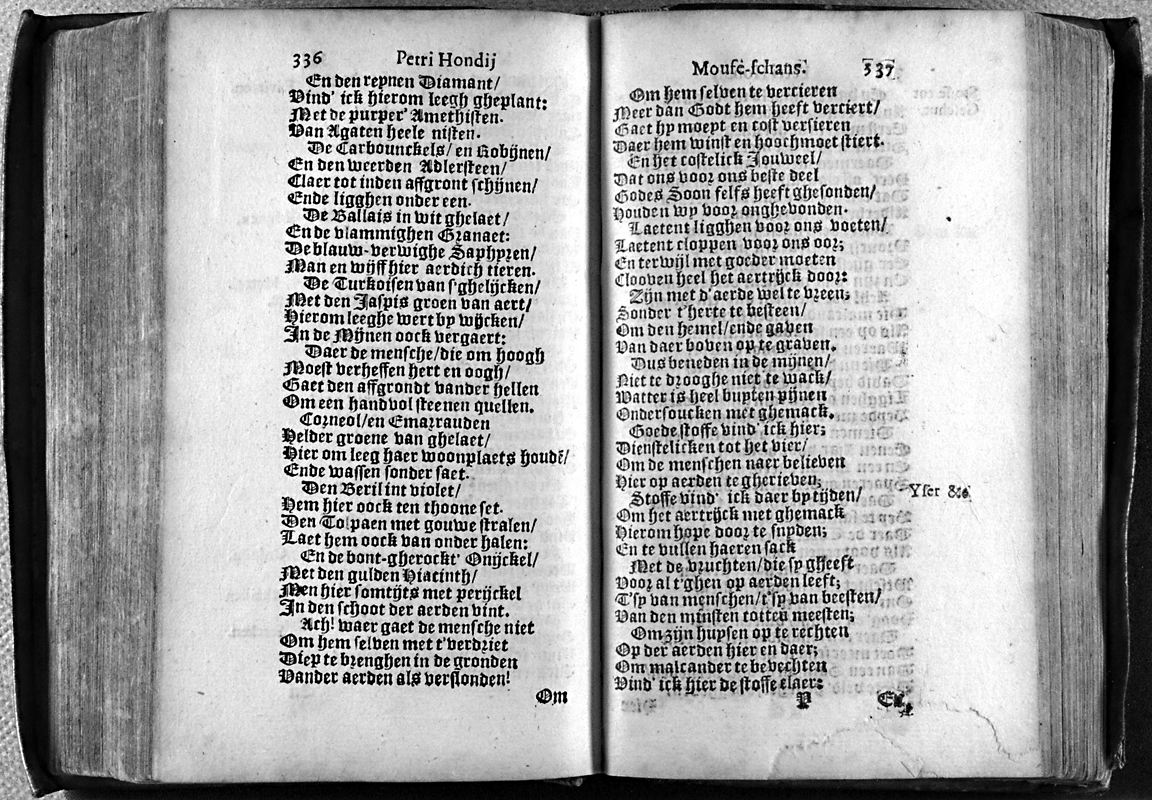 336 Petri Hondij
En den reynen Diamant/
Vind' ick hierom leegh gheplant:
Met de purper' Amethisten.
Van Agaten heele nisten.
De Carbounckels/ en Robijnen/
En den weerden Adlersteen/
Claer tot inden affgront schijnen/
Ende ligghen onder een.
De Ballais in wit ghelaet/
En de vlammighen Granaet:
De blauw-verwighe Saphyren/
Man en wijff hier aerdich tieren.
De Turkoisen van s'ghelijcken/
Met den Jaspis groen van aert/
Hierom leeghe wert by wijcken/
In de Mijnen oock vergaert:
Daer de mensche/die om hoogh
Moest verheffen hert en oogh/
Gaet den affgrondt vander hellen
Om een handvol steenen quellen.
Corneol/en Emarrauden
Helder groene van ghelaet/
Hier om leeg haer woonplaets houdē/
Ende wassen sonder saet.
Den Beril int violet/
Hem hier oock ten thoone set.
Den Tolpaen met gouwe stralen/
Laet hem oock van onder halen:
En de bont-gherockt' Onijckel/
Met den gulden Hiacinth/
Men hier somtijts met perijckel
In den schoot der aerden vint.
Ach! waer gaet de mensche niet
Om hem selven met t'verdriet
Diep te brenghen in de gronden
Vander aerden als verslonden!
Om
Mouse-schans. 337
Om hem selven te vercieren
Meer dan Godt hem heeft verciert/
Gaet hy moeyt en cost versieren
Daer hem winst en hoochmoet stiert.
En het costelick Jouweel/
Dat ons voor ons beste deel
Godes Soon selfs heeft ghesonden/
Houden wy voor onghevonden.
Laetent ligghen voor ons voeten/
Laetent cloppen voor ons oor;
En terwijl met goeder moeten
Clooven heel het aertrijck door:
Zijn met d'aerde wel te vreen;
Sonder t'herte te besteen/
Om den hemel/ende gaven
Van daer boven op te graven.
Dus beneden in de mijnen/
Niet te drooghe niet te wack/
Watter is heel buyten pijnen
Ondersoucken met ghemack.
Goede stoffe vind' ick hier;
Dienstelicken tot het vier/
Om de menschen naer believen
Hier op aerden te gherieven;
Stoffe vind' ick daer by tijden/
Yser &c.
Om het aertrijck met ghemack
Hierom hope door te snyden;
En te vullen haeren sack
Met de vruchten/die sy gheeft
Voor al t'ghen op aerden leeft;
T'sy van menschen/t'sy van beesten/
Van den minsten totten meesten;
Om zijn huysen op te rechten
Op der aerden hier en daer;
Om malcander te bevechten
Vind' ick hier de stoffe claer:
P